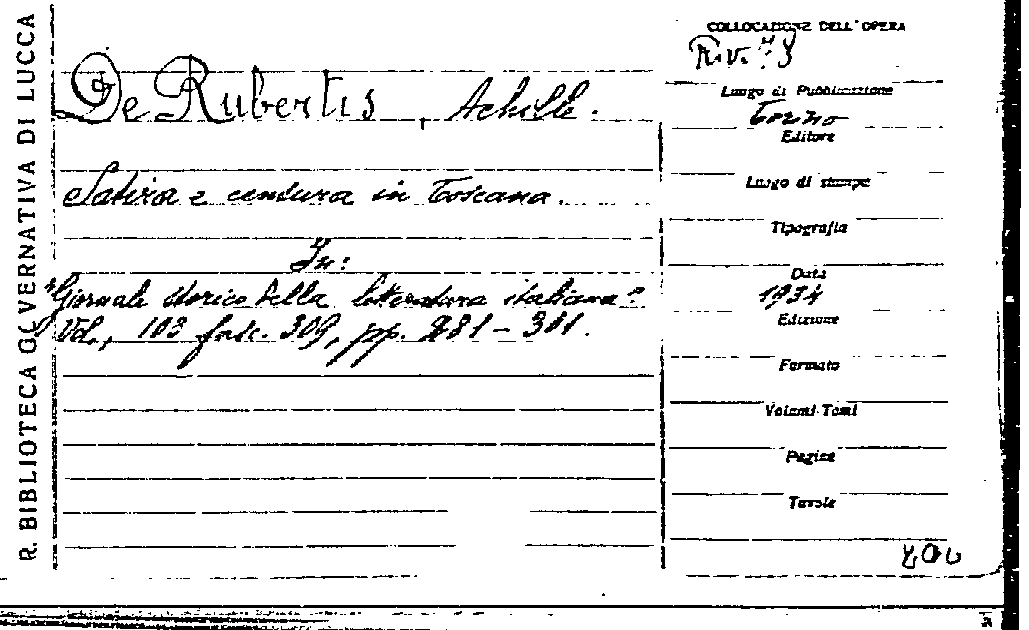 R. BIBLIOTECA GOVERNATIVA DI LUCCA
De Rubertis, Achille.
Satira e censura in Toscana.
In:
"Giornale storico della letteratura italiana"
Vol., 103 fasc. 309, pp.
COLLOCAZIONE DELL'OPERA
Riv.
Luogo di Pubblicazione
Torino
Editore
Luogo di stampa
Tipografia
Data
1934
Edizione
Formato
Volumi-Tomi
Pagine
Tavole